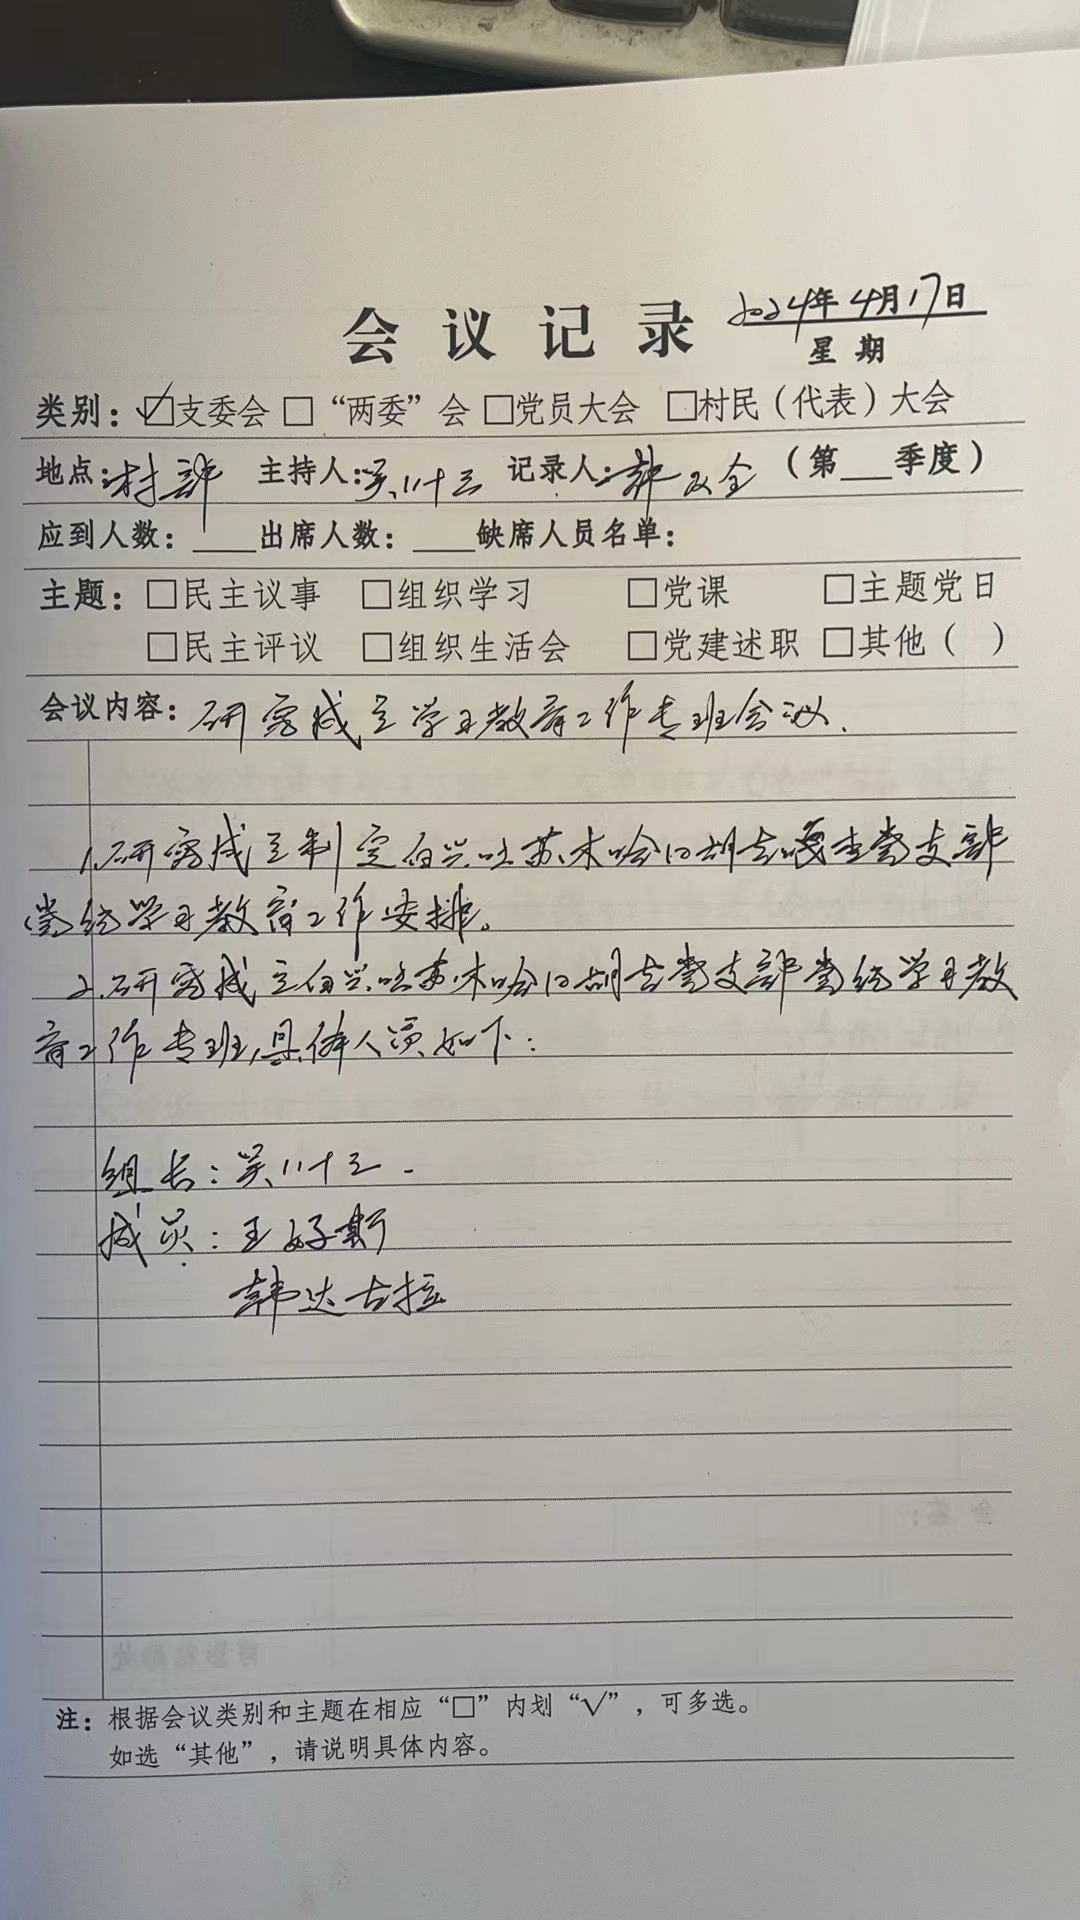 会议记录 2024年4月17日
星期
类别：☑支委会 □“两委”会 □党员大会 □村民（代表）大会
地点：村部 主持人：吴八十三 记录人：韩双全 （第___季度）
应到人数：____出席人数：____缺席人员名单：
主题：□民主议事 □组织学习 □党课 □主题党日
□民主评议 □组织生活会 □党建述职 □其他（ ）
会议内容：研究成立学习教育工作专班会议.
1.研究成立制定白兴吐苏木哈日胡吉嘎查党支部
党纪学习教育工作安排。
2.研究成立白兴吐苏木哈日胡吉党支部党纪学习教
育工作专班,具体人员如下：
组长：吴八十三.
成员：王好斯
韩达古拉
注：根据会议类别和主题在相应“□”内划“√”，可多选。
如选“其他”，请说明具体内容。